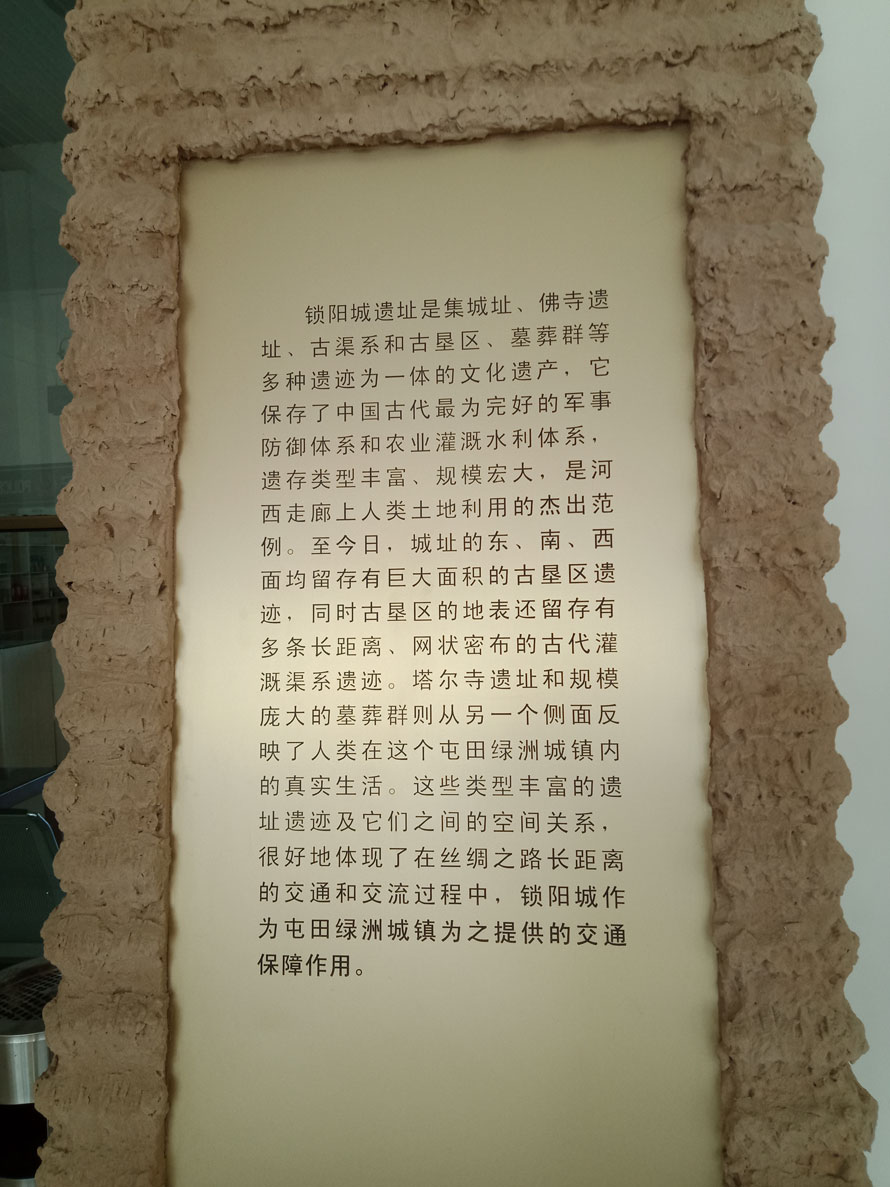 锁阳城遗址是集城址、佛寺遗
址、古渠系和古垦区、墓葬群等
多种遗迹为一体的文化遗产，它
保存了中国古代最为完好的军事
防御体系和农业灌溉水利体系，
遗存类型丰富、规模宏大，是河
西走廊上人类土地利用的杰出范
例。至今日，城址的东、南、西
面均留存有巨大面积的古垦区遗
迹，同时古垦区的地表还留存有
多条长距离、网状密布的古代灌
溉渠系遗迹。塔尔寺遗址和规模
庞大的墓葬群则从另一个侧面反
映了人类在这个屯田绿洲城镇内
的真实生活。这些类型丰富的遗
址遗迹及它们之间的空间关系，
很好地体现了在丝绸之路长距离
的交通和交流过程中，锁阳城作
为屯田绿洲城镇为之提供的交通
保障作用。